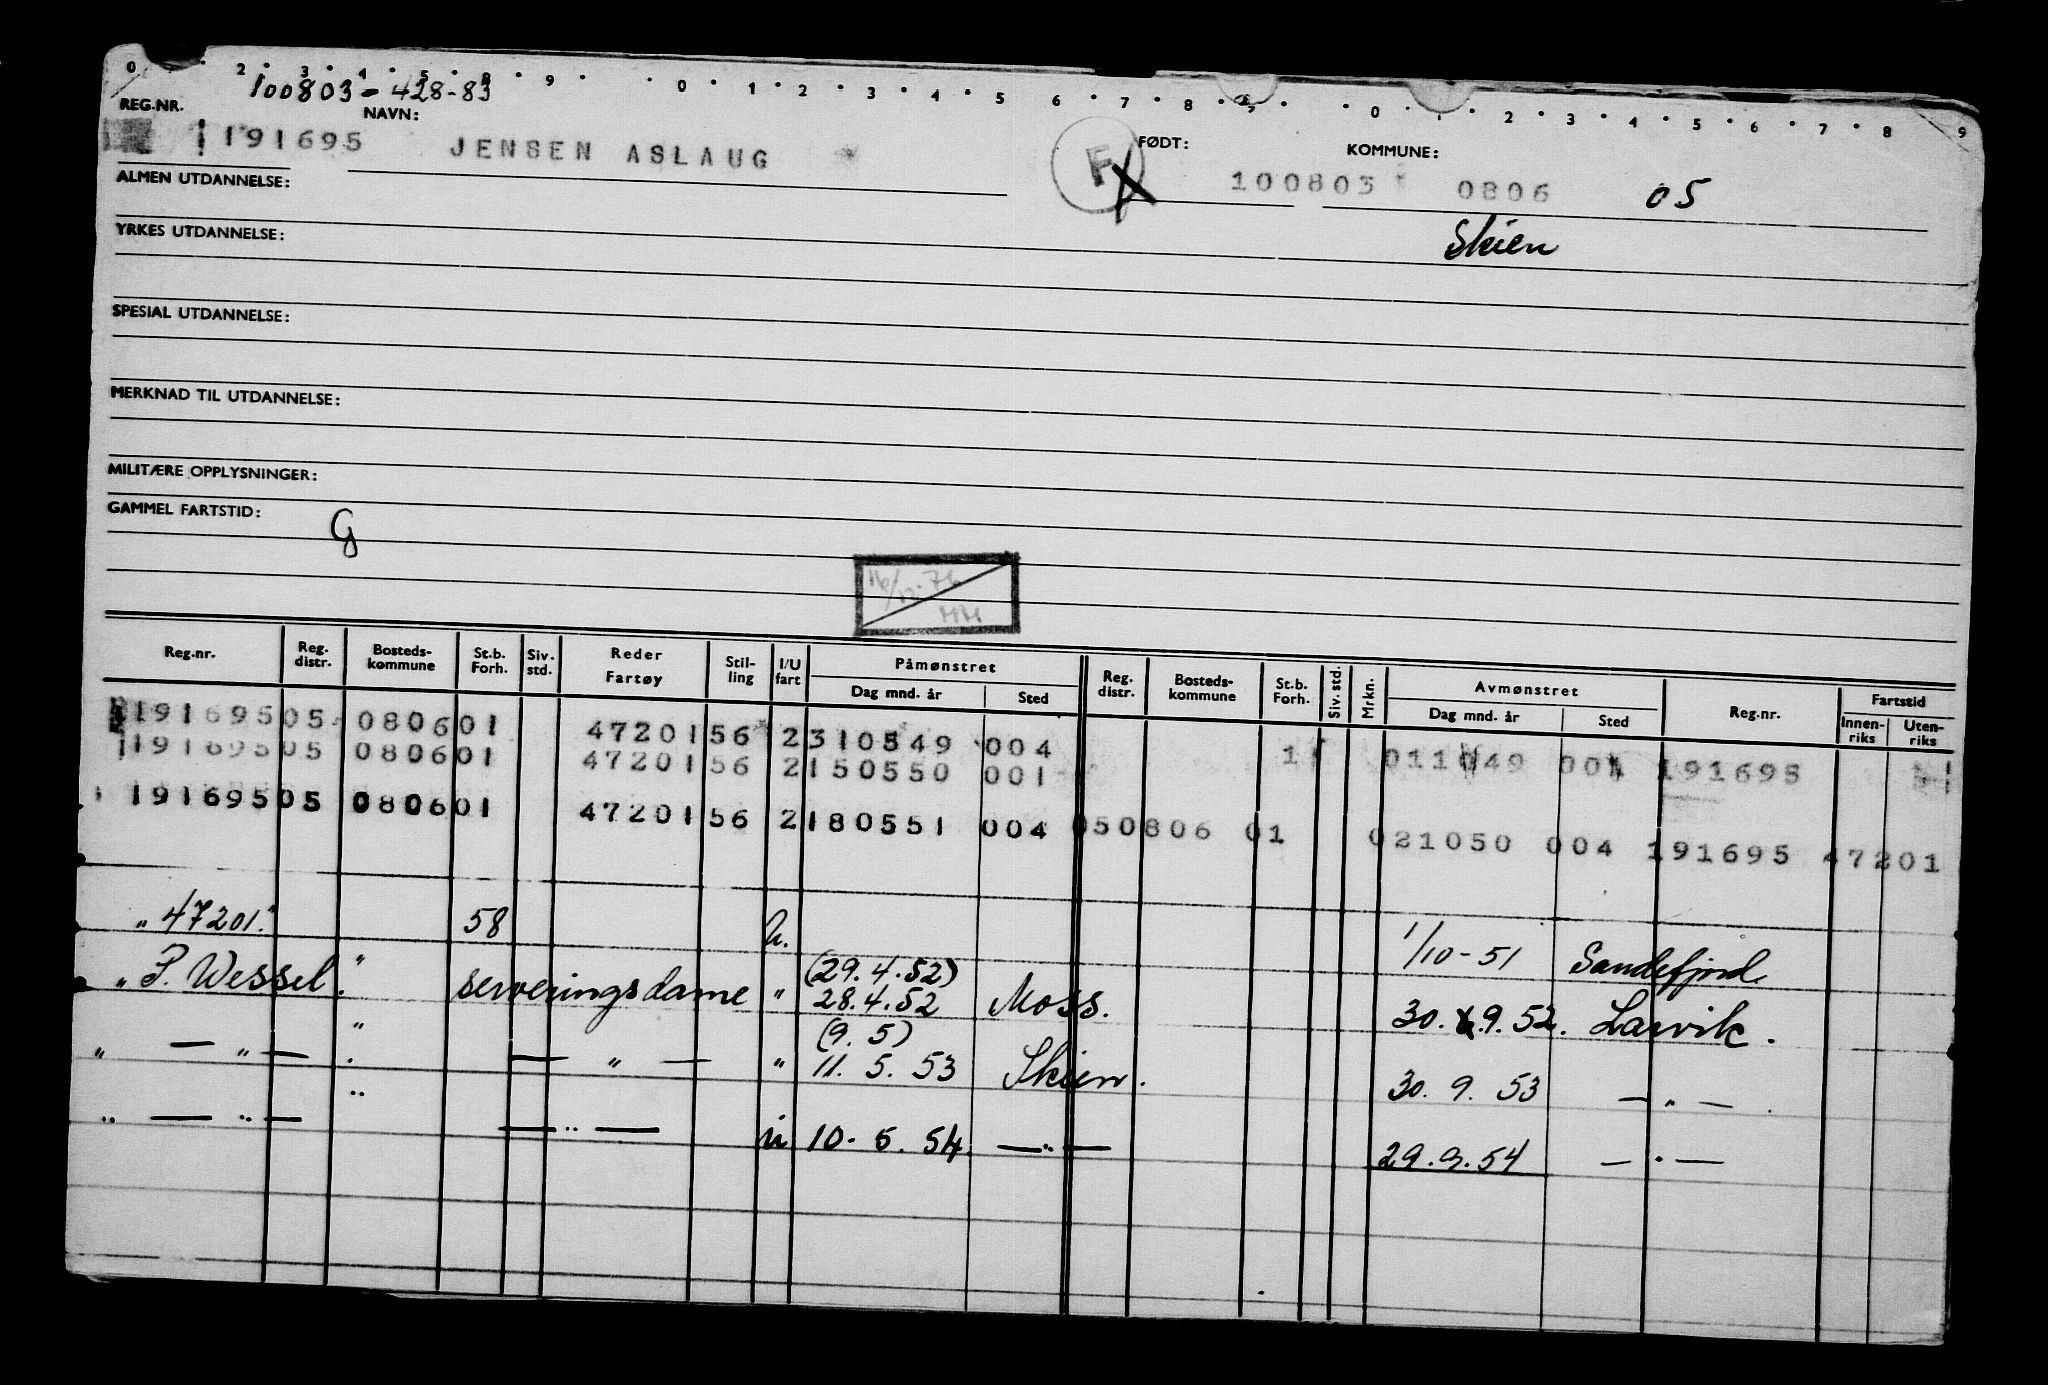 0 2 3 4 5 8 9 0 1 2 3 4 5 6 7 8 9 0 1 2 3 4 5 6 7 8 9
100803-428-83
REG.NR. NAVN: FØDT: KOMMUNE:
191695 JENSEN ASLAUG F 100803 0806 05
ALMEN UTDANNELSE:
Skien
YRKES UTDANNELSE:
SPESIAL UTDANNELSE:
MERKNAD TIL UTDANNELSE:
MILITÆRE OPPLYSNINGER:
GAMMEL FARTSTID: G
Reg.nr. Reg. distr. Bosteds-kommune St.b. Forh. Siv. std. Reder Fartøy Stil-ling I/U fart Påmønstret Dag mnd. år Sted Reg. distr. Bosteds-kommune St.b. Forh. Siv. std. Mrkn. Avmønstret Dag mnd. år Sted Reg.nr. Fartstid Innen-riks Uten-riks
191695 05 0806 01 47201 56 2 310549 004 1 011049 004 191695
191695 05 0806 01 47201 56 2 150550 001 05 0806 01 021050 004 191695 47201
191695 05 0806 01 47201 56 2 180551 004
"47201." 58 u. 1/10-51 Sandefjord.
(29.4.52)
"P. Wessel." serveringsdame " 28.4.52 Moss. 30.9.52. Larvik.
(9.5)
" — " — " — " — " 11. 5. 53 Skien. 30. 9. 53 — " — .
" — " — " — " — u 10. 5. 54. — " — 29.9.54 — " —